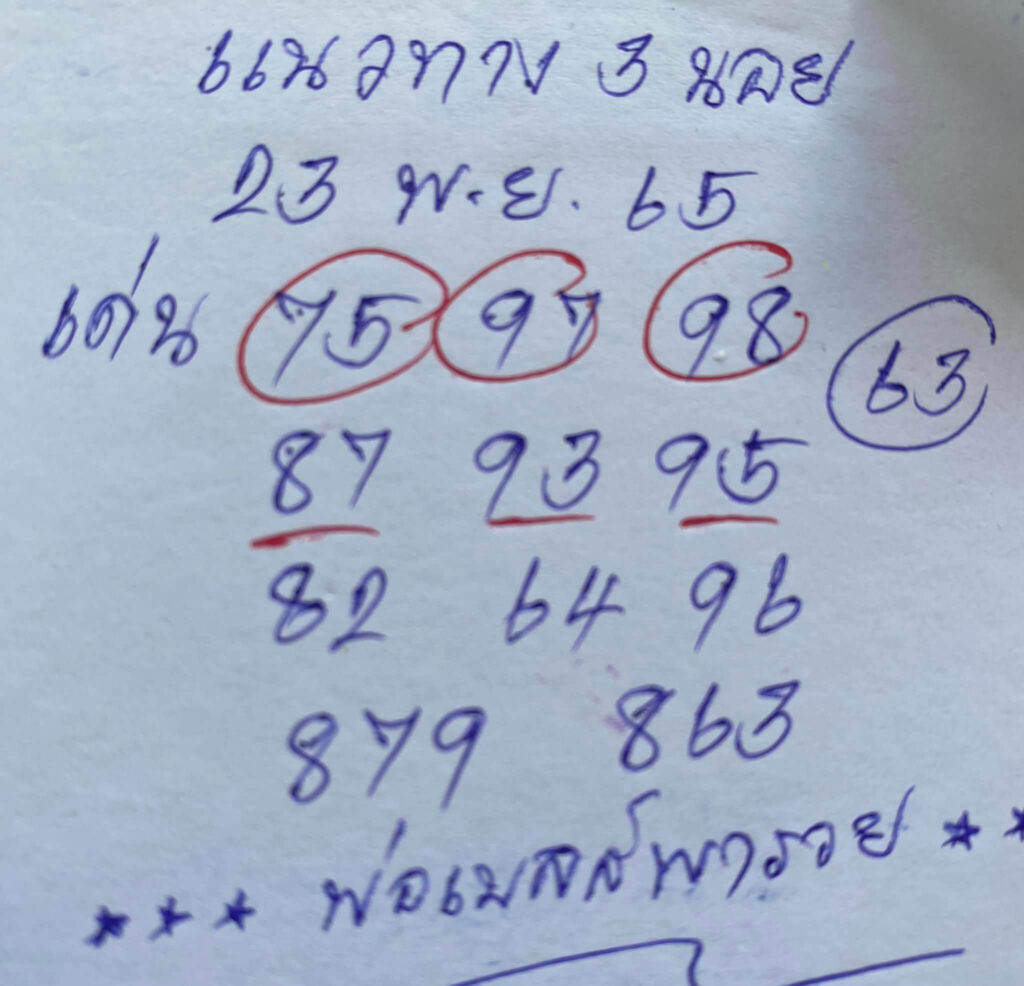 แนวทาง 3 นอย
23 พ.ย. 65
เด่น 75 97 98
63
87 93 95
82 64 96
879 863
*** พ่อเมสส์พารวย **